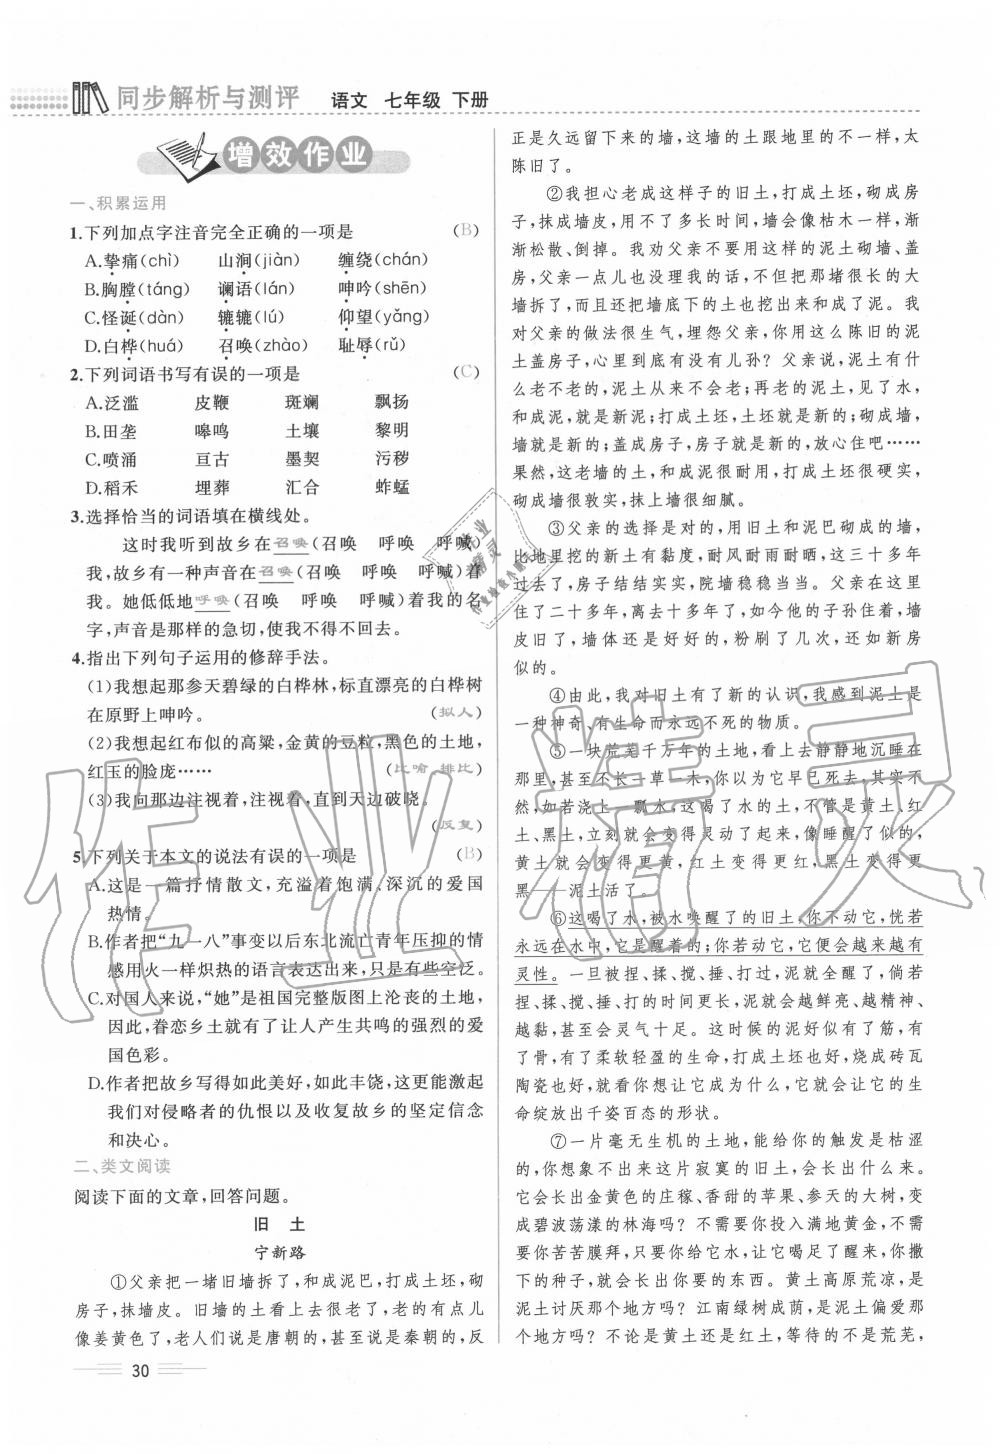 同步解析与测评 语文 七年级 下册
增效作业
一、积累运用
1.下列加点字注音完全正确的一项是 (B)
A.挚痛(chì) 山涧(jiàn) 缠绕(chán)
B.胸膛(táng) 谰语(lán) 呻吟(shēn)
C.怪诞(dàn) 辘辘(lú) 仰望(yǎng)
D.白桦(huá) 召唤(zhào) 耻辱(rǔ)
2.下列词语书写有误的一项是 (C)
A.泛滥 皮鞭 斑斓 飘扬
B.田垄 嗥鸣 土壤 黎明
C.喷涌 亘古 墨契 污秽
D.稻禾 埋葬 汇合 蚱蜢
3.选择恰当的词语填在横线处。
这时我听到故乡在召唤(召唤 呼唤 呼喊)
我,故乡有一种声音在召唤(召唤 呼唤 呼喊)着
我。她低低地呼唤(召唤 呼唤 呼喊)着我的名
字,声音是那样的急切,使我不得不回去。
4.指出下列句子运用的修辞手法。
(1)我想起那参天碧绿的白桦林,标直漂亮的白桦树
在原野上呻吟。 (拟人)
(2)我想起红布似的高粱,金黄的豆粒,黑色的土地,
红玉的脸庞…… (比喻 排比)
(3)我向那边注视着,注视着,直到天边破晓。
(反复)
5.下列关于本文的说法有误的一项是 (B)
A.这是一篇抒情散文,充溢着饱满、深沉的爱国
热情。
B.作者把“九一八”事变以后东北流亡青年压抑的情
感用火一样炽热的语言表达出来,只是有些空泛。
C.对国人来说,“她”是祖国完整版图上沦丧的土地,
因此,眷恋乡土就有了让人产生共鸣的强烈的爱
国色彩。
D.作者把故乡写得如此美好,如此丰饶,这更能激起
我们对侵略者的仇恨以及收复故乡的坚定信念
和决心。
二、类文阅读
阅读下面的文章,回答问题。
旧 土
宁新路
①父亲把一堵旧墙拆了,和成泥巴,打成土坯,砌
房子,抹墙皮。旧墙的土看上去很老了,老的有点儿
像姜黄色了,老人们说是唐朝的,甚至说是秦朝的,反
正是久远留下来的墙,这墙的土跟地里的不一样,太
陈旧了。
②我担心老成这样子的旧土,打成土坯,砌成房
子,抹成墙皮,用不了多长时间,墙会像枯木一样,渐
渐松散、倒掉。我劝父亲不要用这样的泥土砌墙、盖
房,父亲一点儿也没理我的话,不但把那堵很长的大
墙拆了,而且还把墙底下的土也挖出来和成了泥。我
对父亲的做法很生气,埋怨父亲,你用这么陈旧的泥
土盖房子,心里到底有没有儿孙?父亲说,泥土有什
么老不老的,泥土从来不会老;再老的泥土,见了水,
和成泥,就是新泥;打成土坯,土坯就是新的;砌成墙,
墙就是新的;盖成房子,房子就是新的,放心住吧……
果然,这老墙的土,和成泥很耐用,打成土坯很硬实,
砌成墙很敦实,抹上墙很细腻。
③父亲的选择是对的,用旧土和泥巴砌成的墙,
比地里挖的新土有黏度,耐风耐雨耐晒,这三十多年
过去了,房子结结实实,院墙稳稳当当。父亲在这里
住了二十多年,离去十多年了,如今他的子孙住着,墙
皮旧了,墙体还是好好的,粉刷了几次,还如新房
似的。
④由此,我对旧土有了新的认识,我感到泥土是
一种神奇、有生命而永远不死的物质。
⑤一块荒芜千万年的土地,看上去静静地沉睡在
那里,甚至不长一草一木,你以为它早已死去,其实不
然,如若浇上一瓢水,这喝了水的土,不管是黄土、红
土、黑土,立刻就会变得灵动了起来,像睡醒了似的,
黄土就会变得更黄,红土变得更红,黑土变得更
黑——泥土活了。
⑥这喝了水,被水唤醒了的旧土,你不动它,恍若
永远在水中,它是醒着的;你若动它,它便会越来越有
灵性。一旦被捏、揉、搅、捶、打过,泥就全醒了,倘若
捏、揉、搅、捶、打的时间更长,泥就会越鲜亮、越精神、
越黏,甚至会灵气十足。这时候的泥好似有了筋,有
了骨,有了柔软轻盈的生命,打成土坯也好,烧成砖瓦
陶瓷也好,就看你想让它成为什么,它就会让它的生
命绽放出千姿百态的形状。
⑦一片毫无生机的土地,能给你的触发是枯涩
的,你想象不出来这片寂寞的旧土,会长出什么来。
它会长出金黄色的庄稼、香甜的苹果、参天的大树,或
变成碧波荡漾的林海吗?不需要你投入满地黄金,不需
要你苦苦膜拜,只要你给它水,让它喝足了醒来,你撒
下的种子,就会长出你要的东西。黄土高原荒凉,是
泥土讨厌那个地方吗?江南绿树成荫,是泥土偏爱那
个地方吗?不论是黄土还是红土,等待的不是荒芜,
30